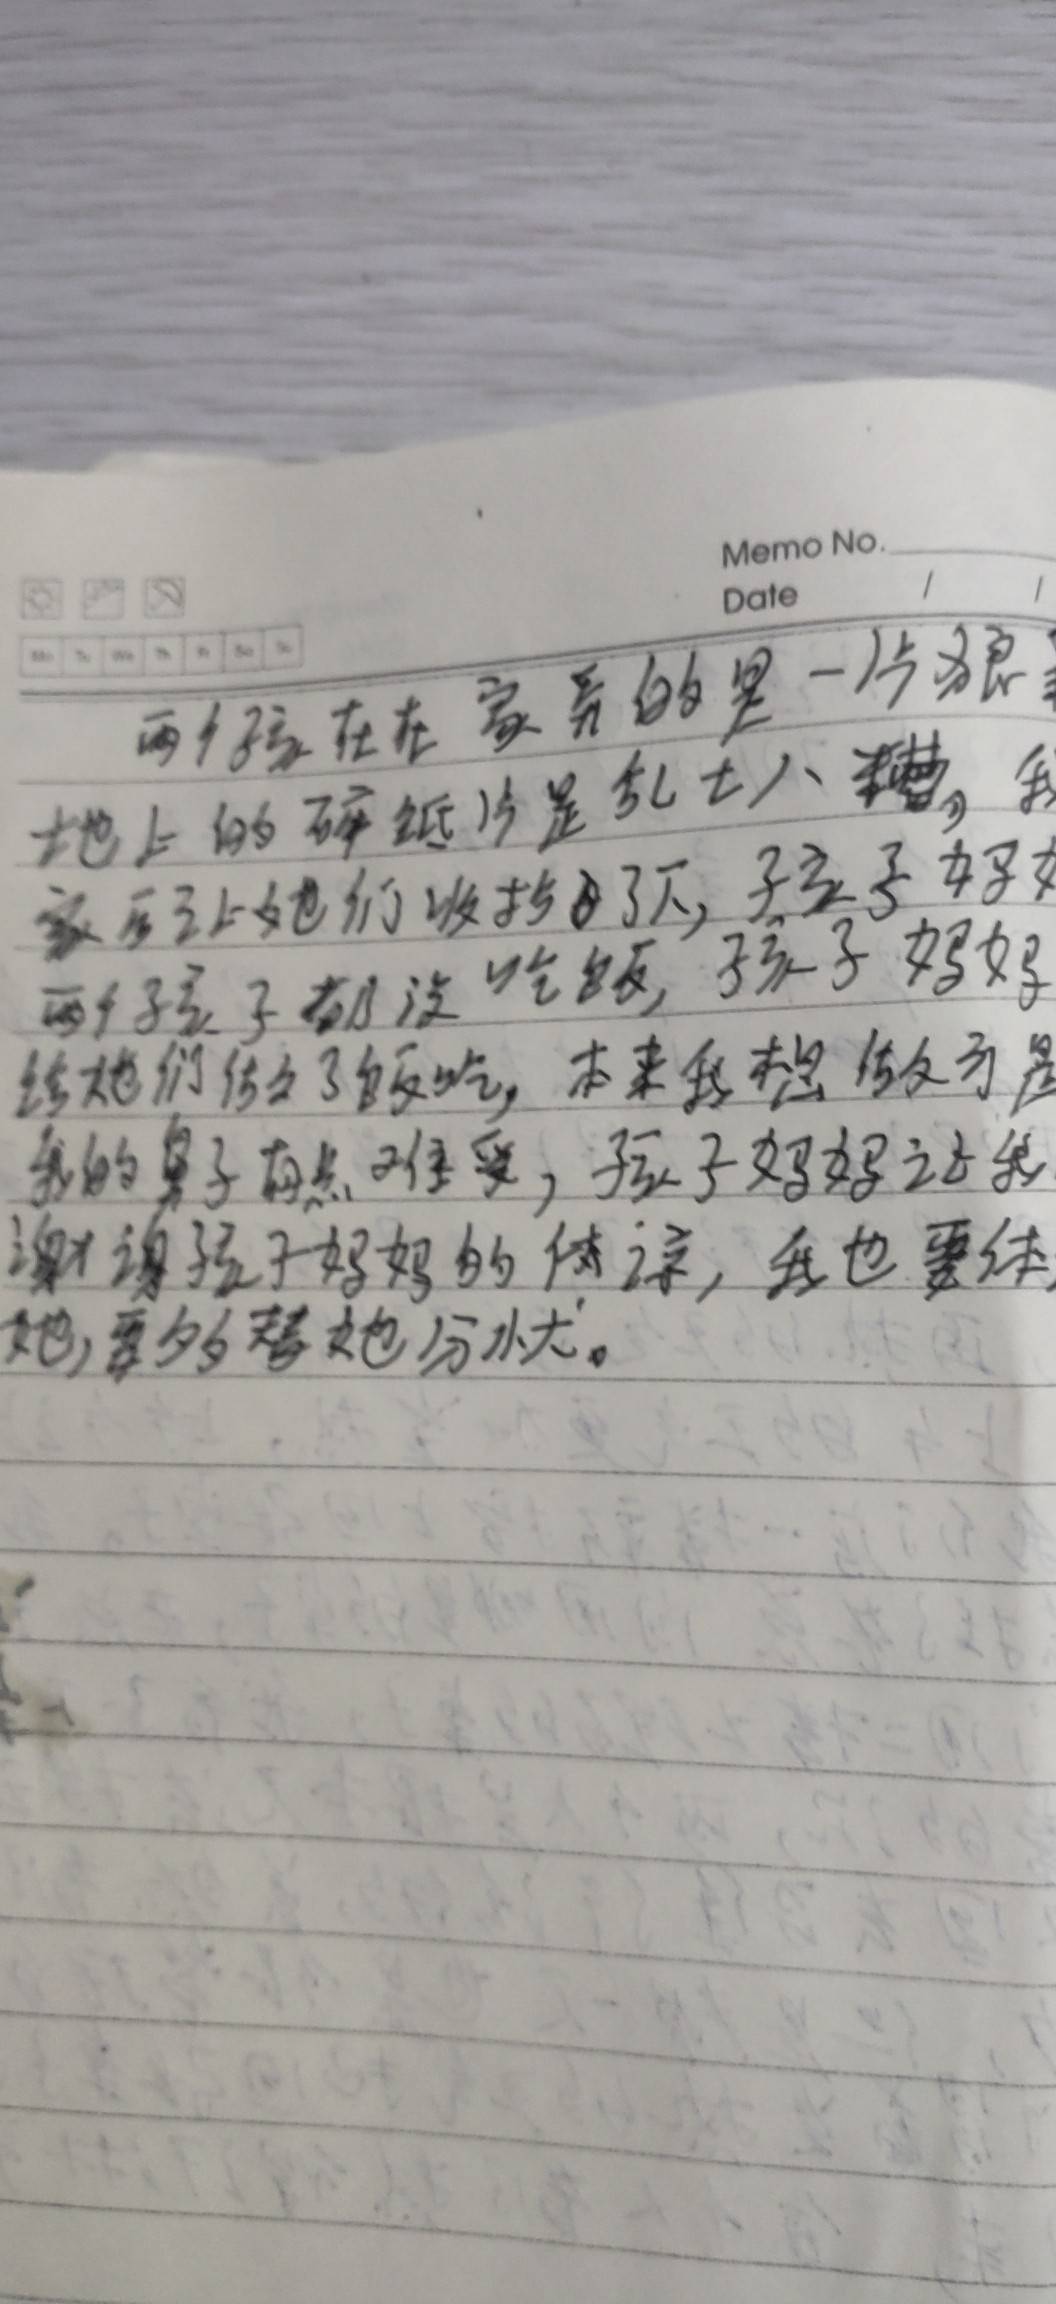 Memo No.
Date / /
Mo Tu We Th Fr Sa Su
两个孩在在家弄的是一片狼
地上的碎纸片是乱七八糟。我
家后让她们收拾了下,孩子妈妈
两个孩子都没吃饭,孩子妈妈
给她们做了饭吃,本来我想做可是
我的鼻子有点难受,孩子妈妈让我
谢谢孩子妈妈的体谅,我也要体
她,要多替她分忧。